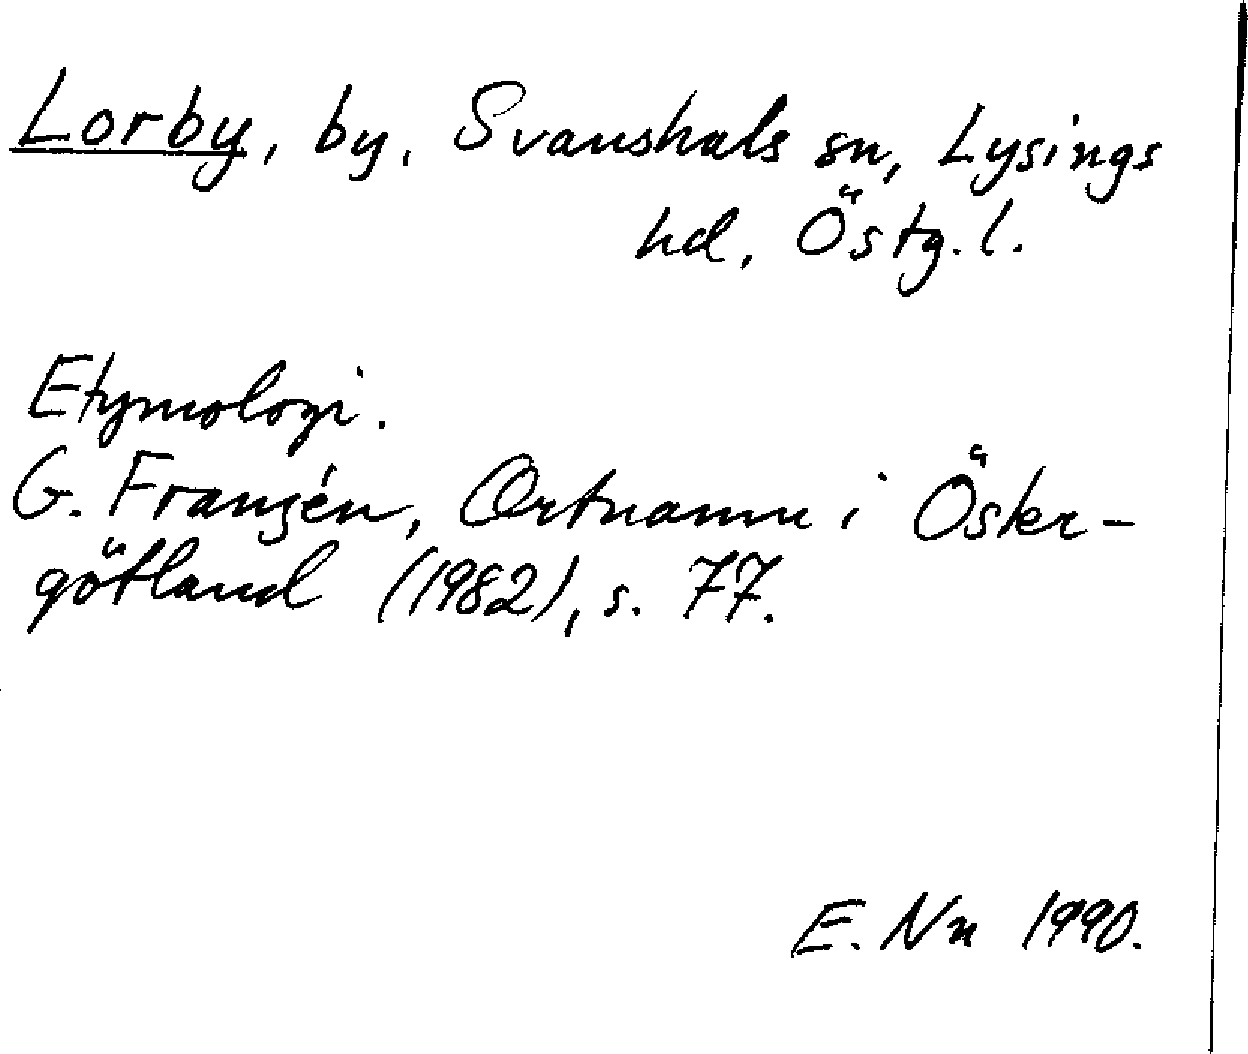 Lorby, by, Svanshals sn, Lysings
hd, Östg. l.
Etymologi.
G. Franzén, Ortnamn i Öster-
götland (1982), s. 77.
E. Nn 1990.